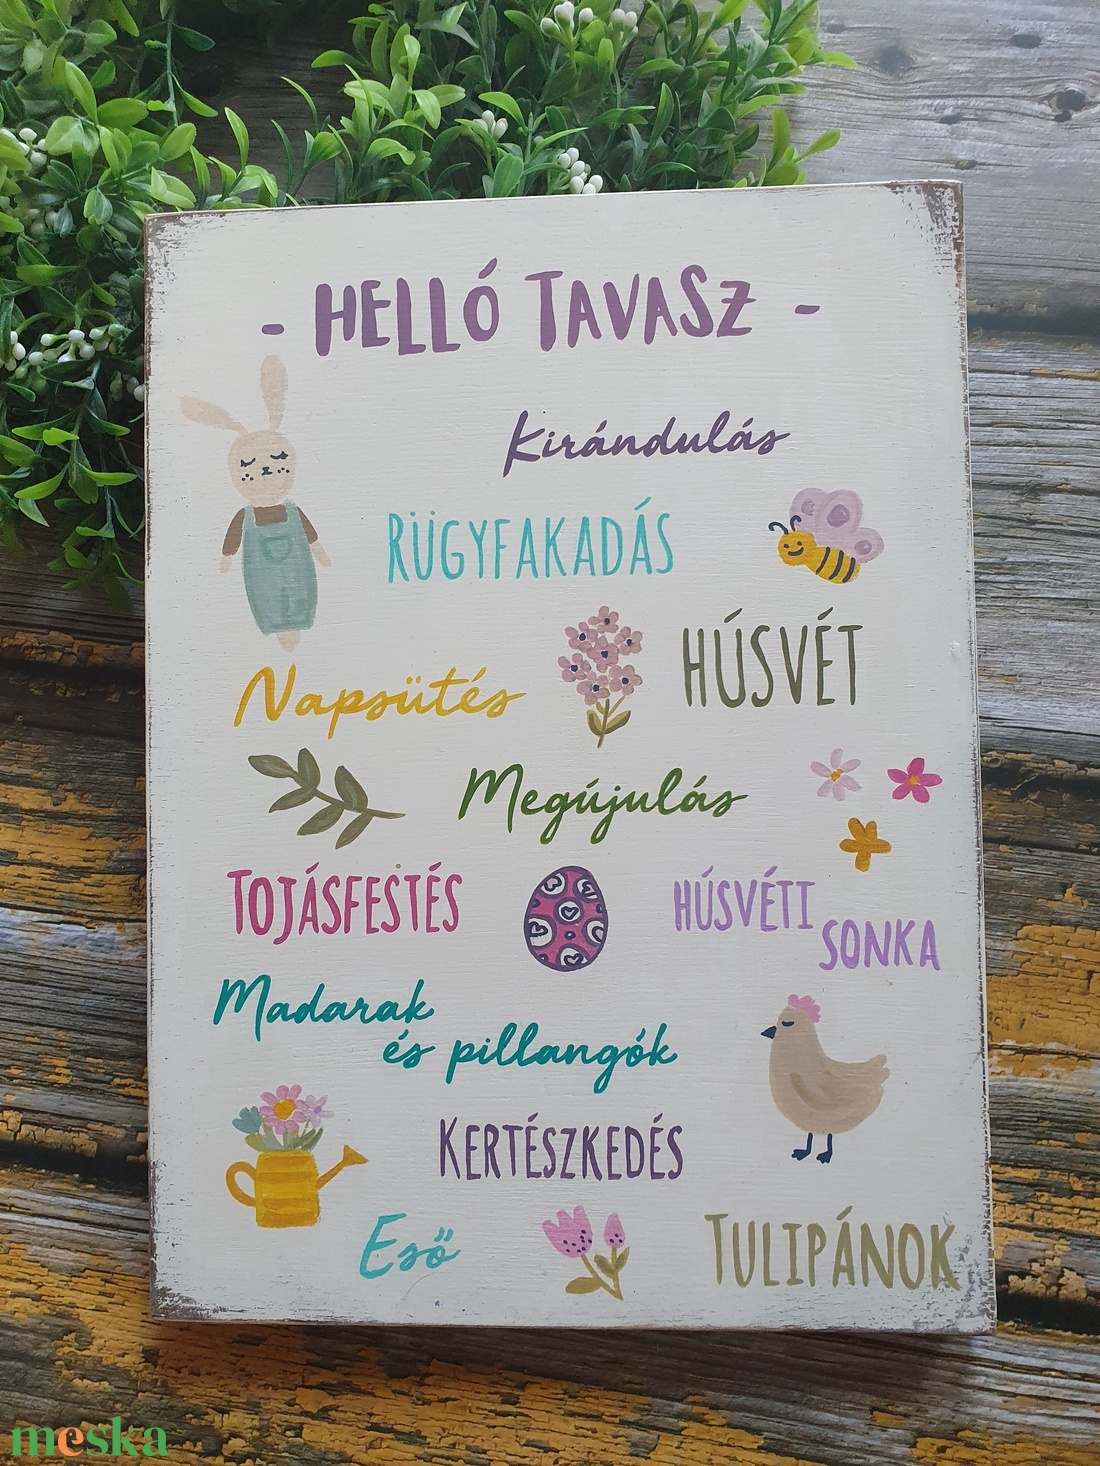 - HELLÓ TAVASZ -
Kirándulás
RÜGYFAKADÁS
HÚSVÉT
Napsütés
Megújulás
TOJÁSFESTÉS
HÚSVÉTI
SONKA
Madarak
és pillangók
KERTÉSZKEDÉS
Eső
TULIPÁNOK
meska